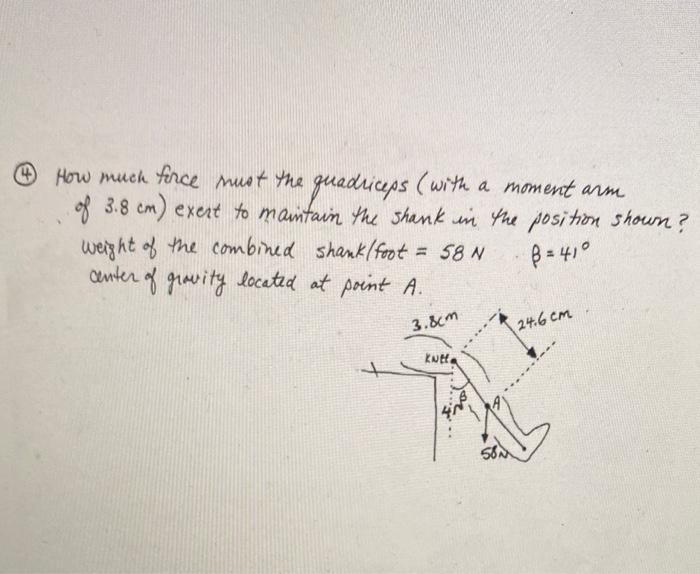 ④ How much force must the quadriceps (with a moment arm
of 3.8 cm) exert to maintain the shank in the position shown?
weight of the combined shank/foot = 58 N β = 41°
center of gravity located at point A.
3.8cm
24.6 cm
KNEE
β
A
58N